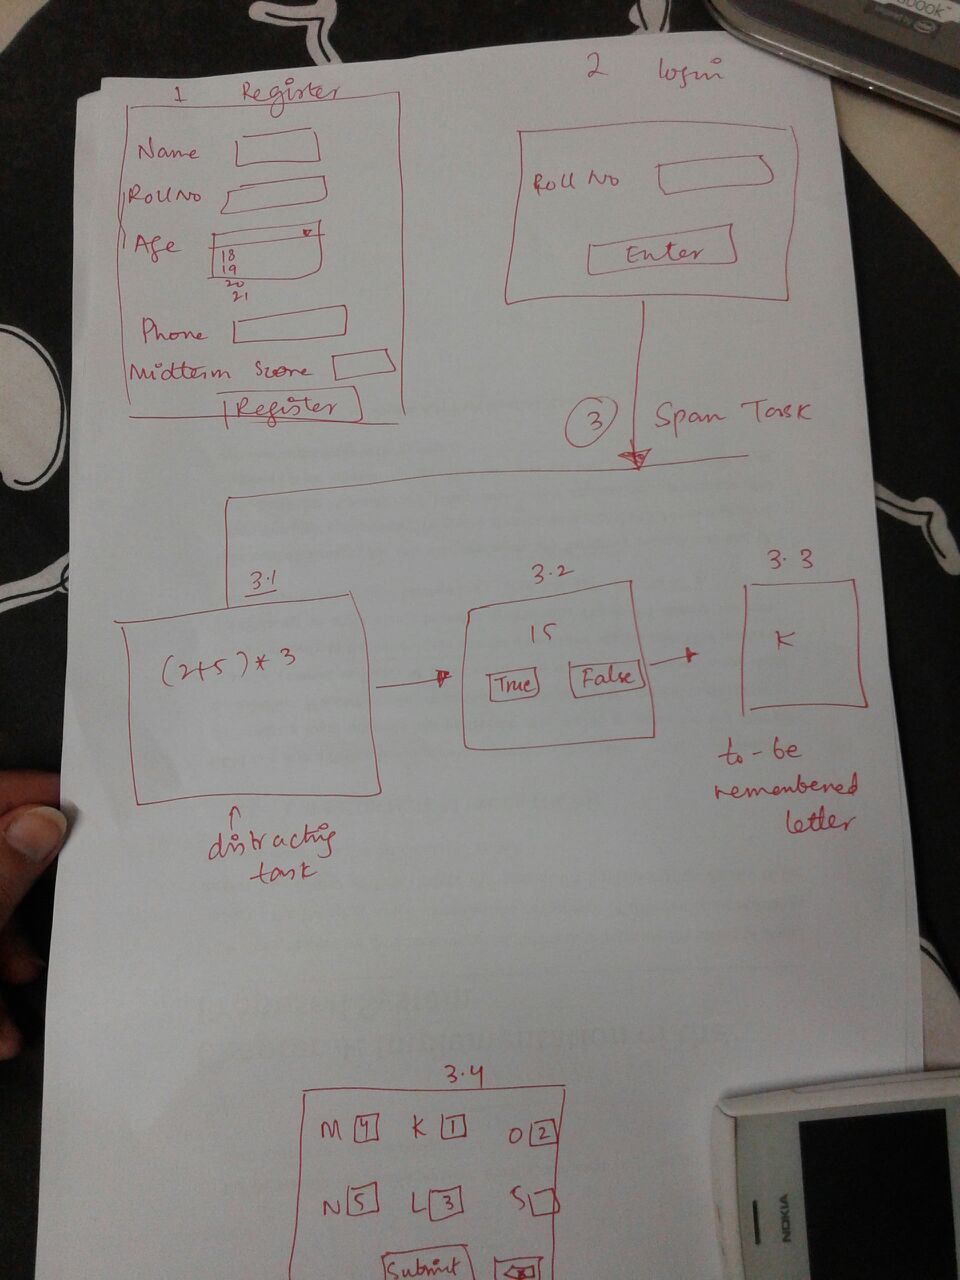 1 Register
Name
Roll No
Age
18
19
20
21
Phone
Midterm Score
Register
2 login
Roll No
Enter
3 Span Task
3.1
(2+5) * 3
distracting
task
3.2
15
True False
3.3
K
to-be
remembered
letter
3.4
M 4 K 1 O 2
N 5 L 3 S
Submit
NOKIA